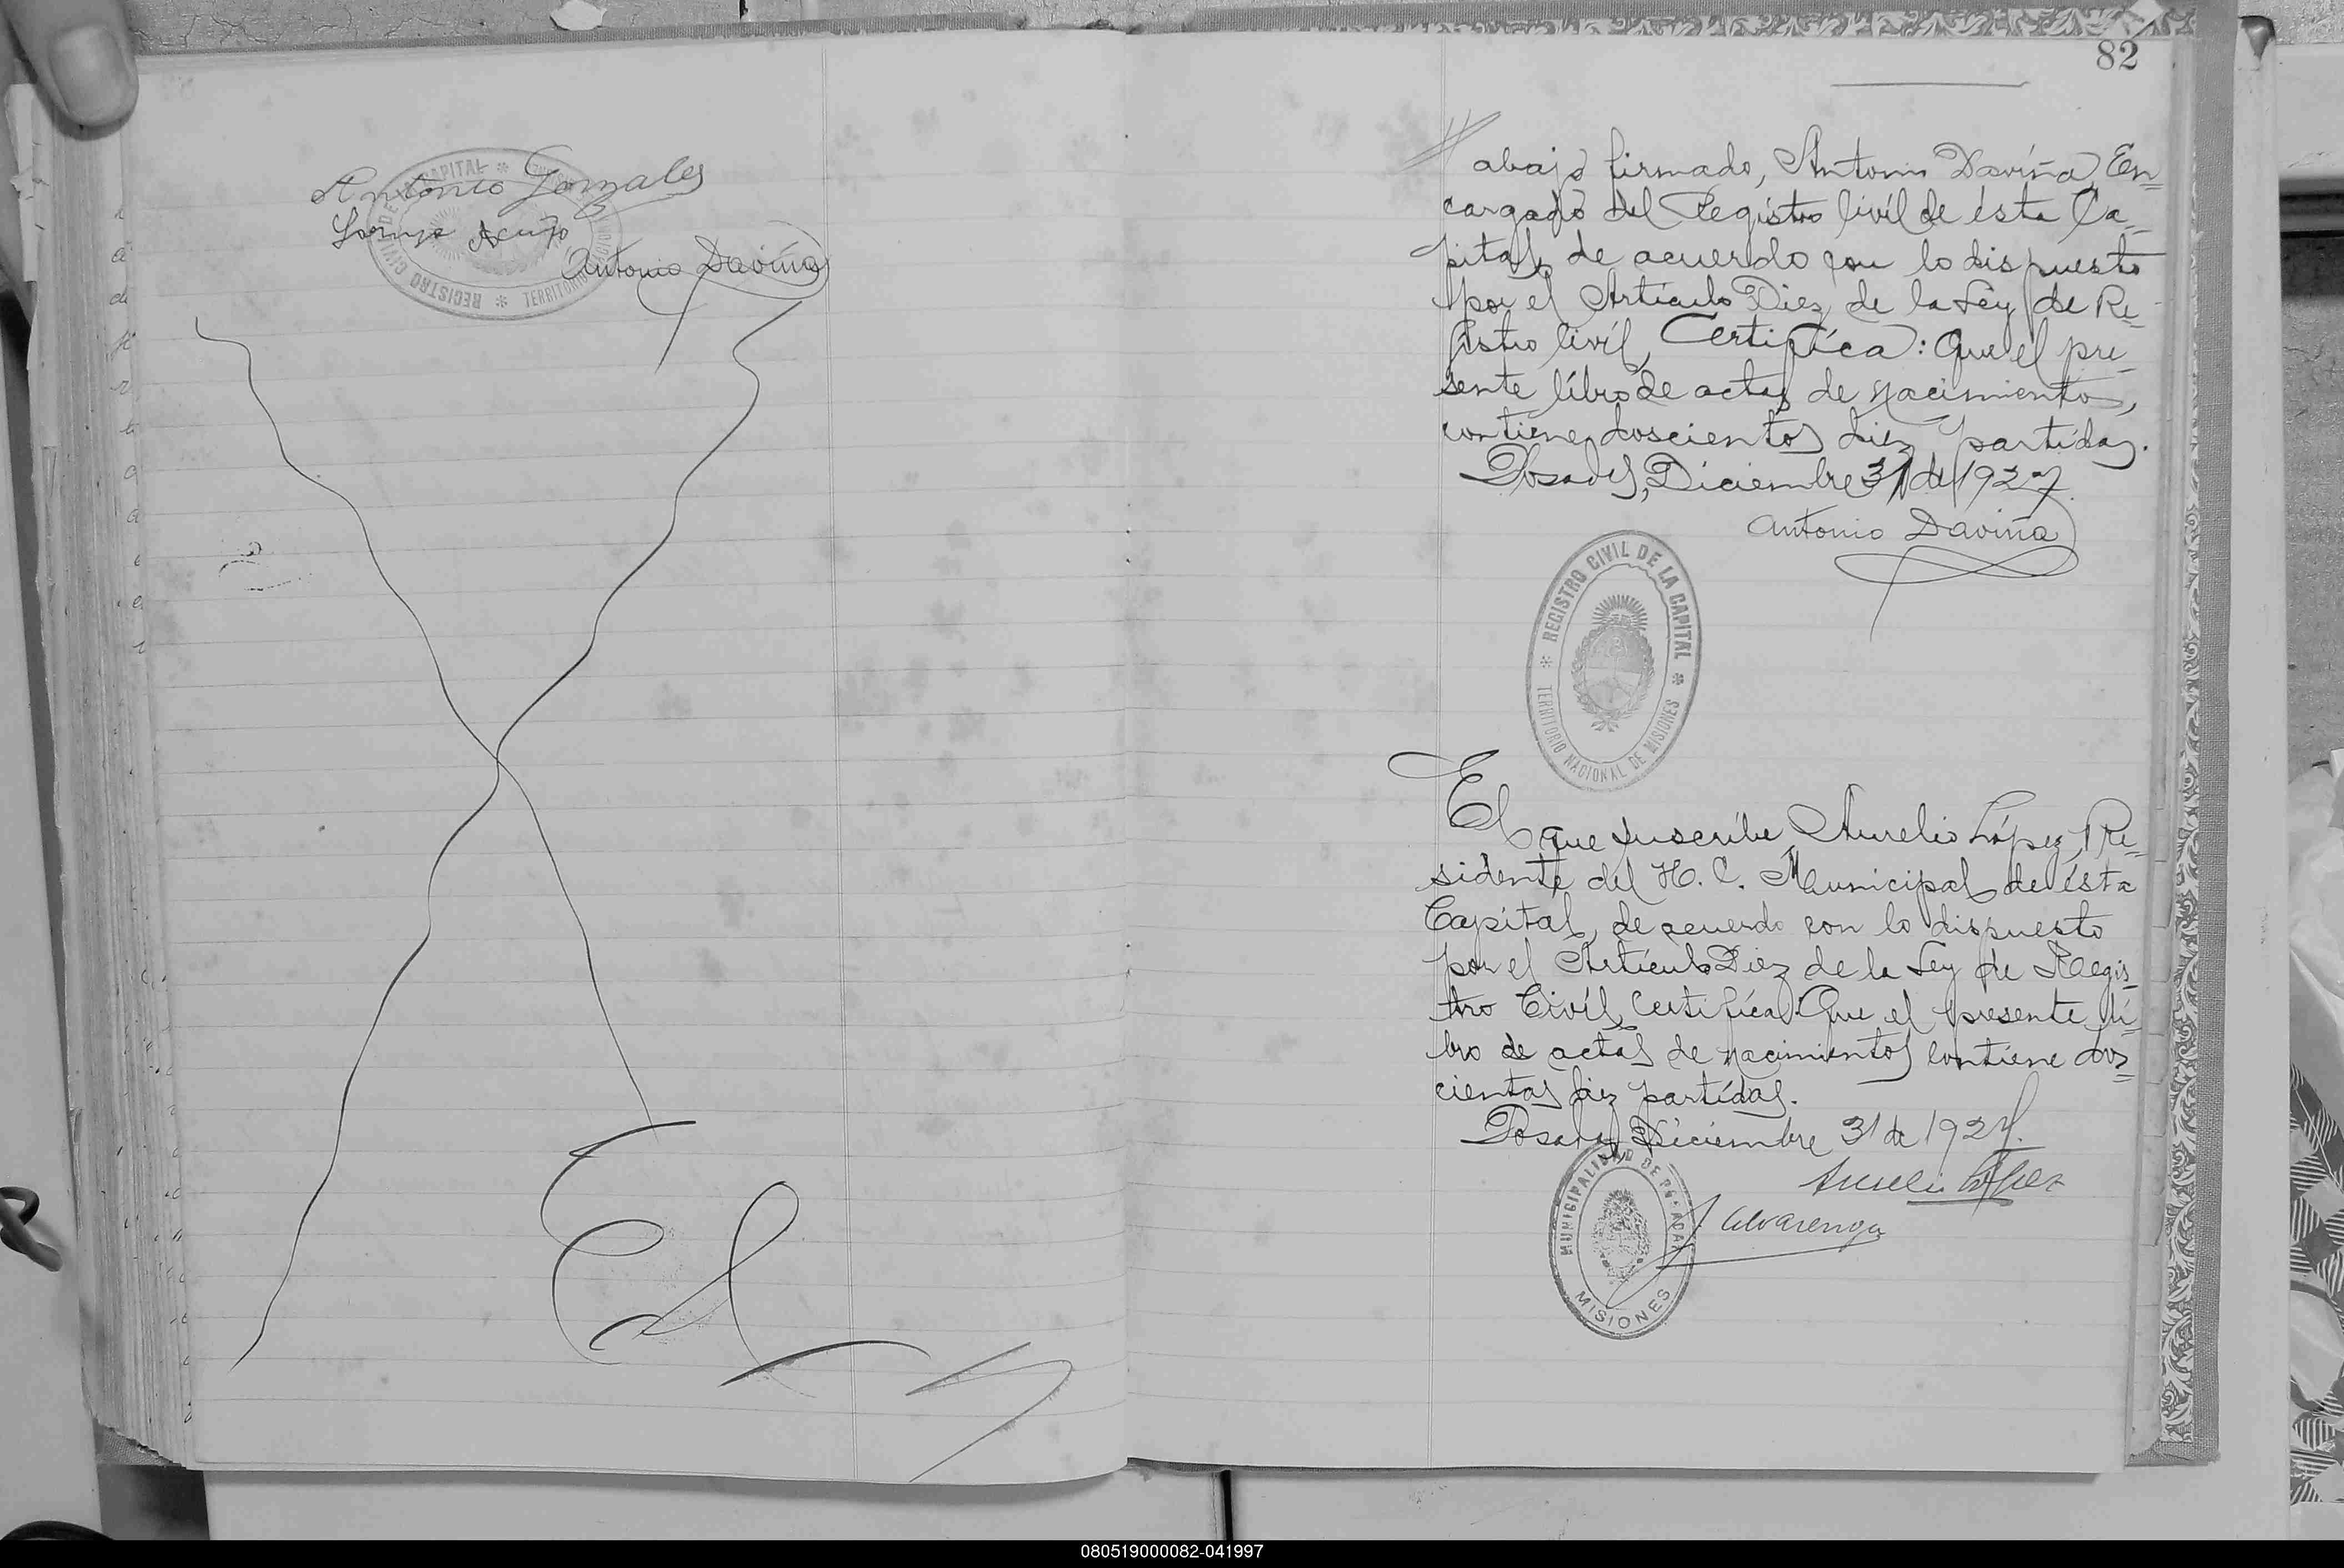 Antonio Gonzales
Antonio Daviña
REGISTRO CIVIL DE LA CAPITAL * TERRITORIO
El
82
abajo firmado, Antonio Daviña, En-
cargado del Registro Civil de ésta Ca-
pital, de acuerdo con lo dispuesto
por el Artículo Diez de la Ley de Re-
gistro Civil, Certifica: Que el pre-
sente libro de actas de nacimientos,
contiene doscientos diez partidas.
Posadas, Diciembre 31 de 1927.
Antonio Daviña
* REGISTRO CIVIL DE LA CAPITAL *
TERRITORIO NACIONAL DE MISIONES
El que suscribe, Aurelio López, Pre-
sidente del H. C. Municipal de ésta
Capital, de acuerdo con lo dispuesto
por el Artículo Diez de la Ley de Regis-
tro Civil, Certifica: Que el presente li-
bro de actas de nacimientos contiene dos-
cientas diez partidas.
Posadas, Diciembre 31 de 1927.
Aurelio López
J Alvarenga
MUNICIPALIDAD DE POSADAS
MISIONES
080519000082-041997